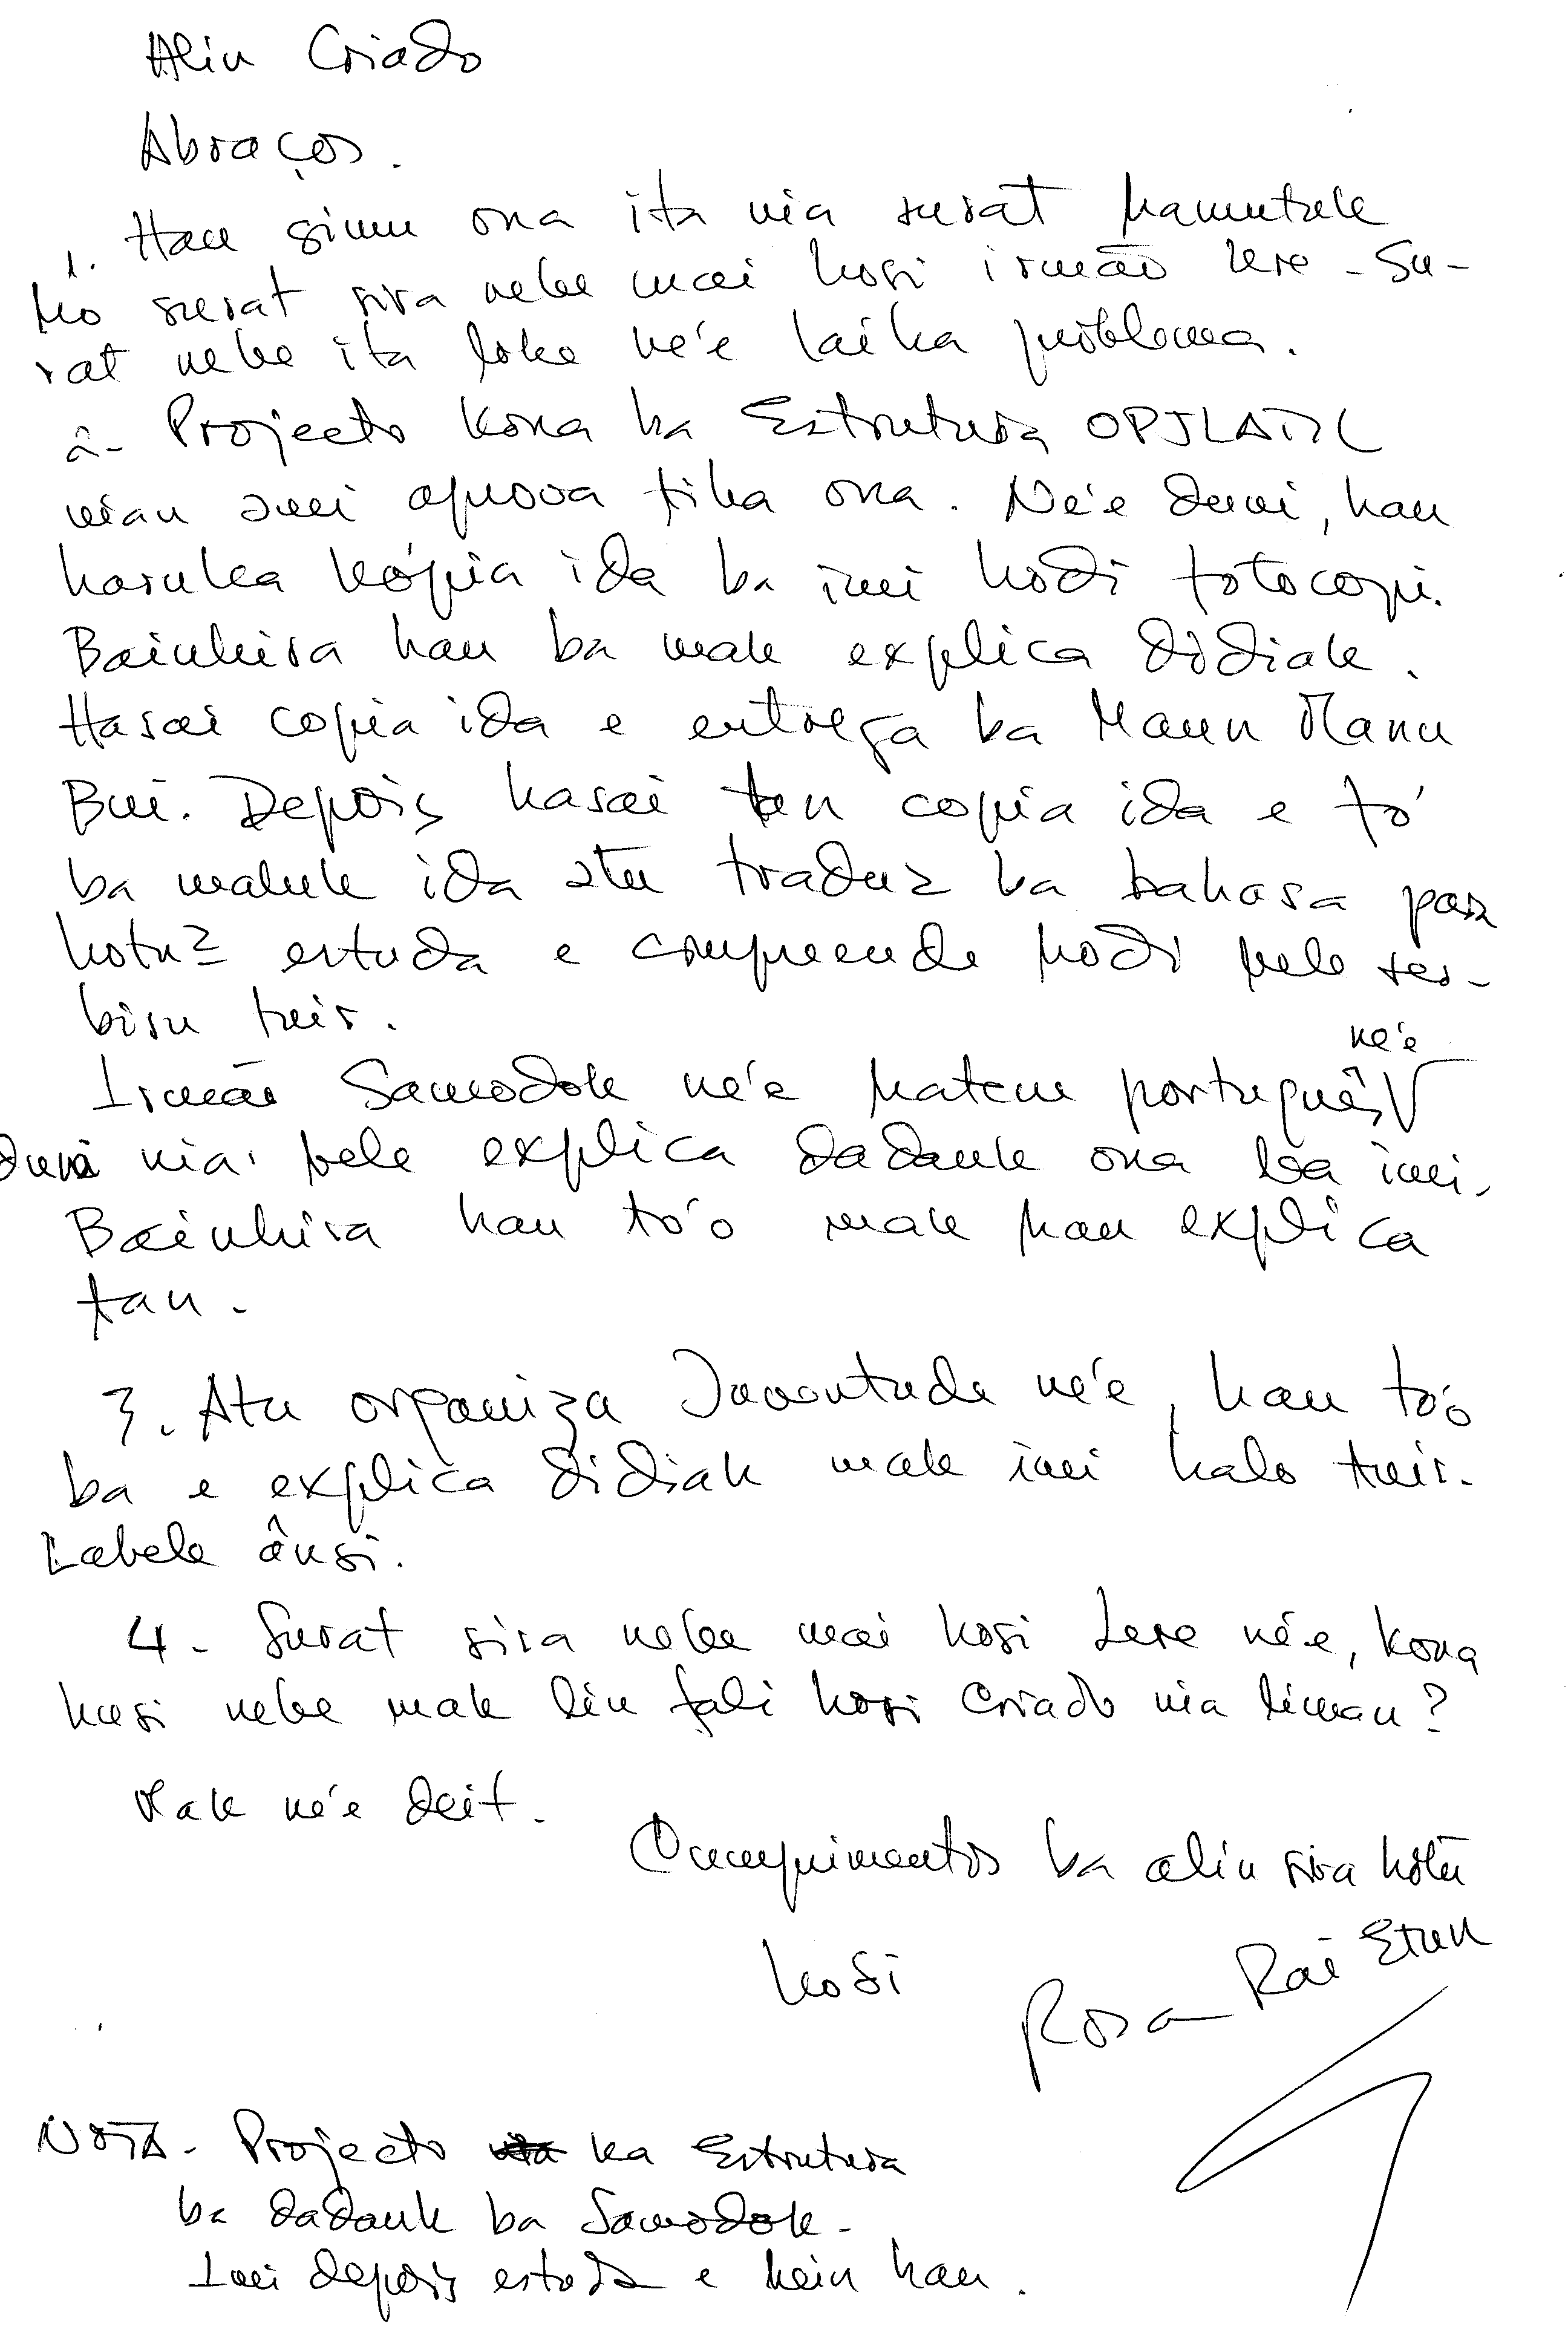 Alin Criado
Abraços.
1. Hau simu ona ita nia surat hamutuk
ho surat sira nebe mai hosi irmão Lere - Su-
rat nebe ita loke ne'e la'i ha problema.
2- Projecto kona ba Estrutura OPJLATIL
nian imi aprova tiha ona. Ne'e duni, hau
haruka kópia ida ba imi hodi fotocopi.
Bainhira hau ba mak explica didiak.
Hasai copia ida e entrega ba Maun Mau
Bui. Depois hasai tan copia ida e fó
ba maluk ida atu traduz ba bahasa para
hotu2 estuda e compreende hodi bele ser-
bisu tuir.
Irmão Samodok ne'e hatene português ne'e
duni nia bele explica dadauk ona ba imi.
Bainhira hau to'o mak hau explica
tan.
3. Atu organiza Juventude ne'e, hau to'o
ba e explica didiak mak imi halo tuir.
Labele ânsi.
4- Surat sira nebe mai hosi Lere ne'e, kona
husi nebe mak liu fali hosi Criado nia liman?
Mak ne'e deit.
Cumprimentos ba alin sira hotu
hosi
Rosa Rai Etun
NOTA- Projecto ba Estrutura
ba dadauk ba Samodok-
Imi depois estuda e hein hau.